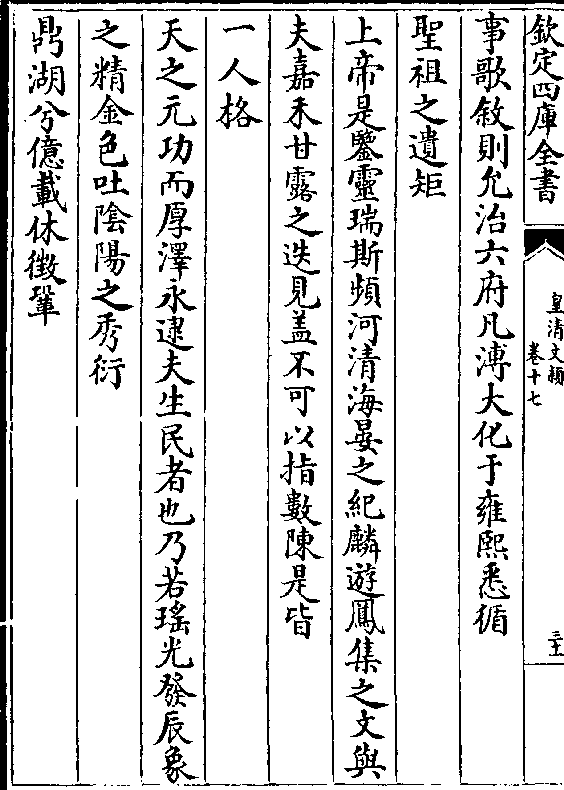 欽定四庫全書
皇清文頴
卷十七
三十五
事歌敘則允治六府凡溥大化于雍熙悉循
聖祖之遺矩
上帝是鑒靈瑞斯頻河清海晏之紀麟遊鳳集之文與
夫嘉禾甘露之迭見盖不可以指數陳是皆
一人格
天之元功而厚澤永逮夫生民者也乃若瑤光發辰象
之精金色吐陰陽之秀衍
鼎湖兮億載休徵鞏